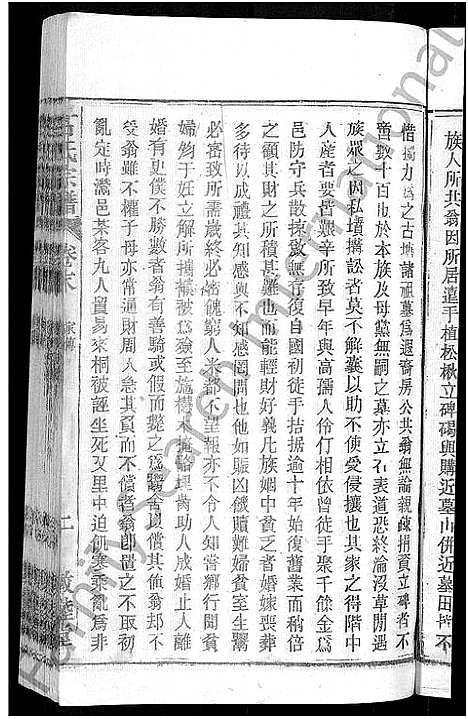 族人所共翁因所居遠手植松楸立碑碣與購近墓山佛近墓田皆不
惜獨力為之古塘諸祖墓為遐裔房公共翁無論親疎捐資立碑者不
啻數十百所於本族及母黨無嗣之墓亦立石表道恐終淪沒草閒遇
族眾之因私墳搆訟者莫不解囊以助不使受侵攘也其家之得階中
人產者要皆艱辛所致早年與高孺人伶仃相依曾徒手聚千餘金為
邑防守兵散掠散無存復自國初徒手拮据逾十年始復舊業而萌
之顧其財之所積甚難也而能輕財好義凡族姻中貧者婚嫁喪葬
多待以成禮其知感與不知感罔問也他如賑凶餓贖難婦貧至生鬻
必審致所需歲終必
醜窮人米都不望報亦不令人知嘗鄰行聞貧
婦夠于妊立解所攜
為殮至施槥不
鮐埋
助人成婚止人離
婚有更僕不勝數者翁有善騎或假而斃之為鬻舍以償其值翁却不
受翁雖不權子母亦常通財周人急其負而不償者翁即置之不取初
亂定時鷰邑某客九人貿易來桐被誣坐死翁里中迫
寒乘亂為非
高氏宗譜 卷末 家傳 二
International